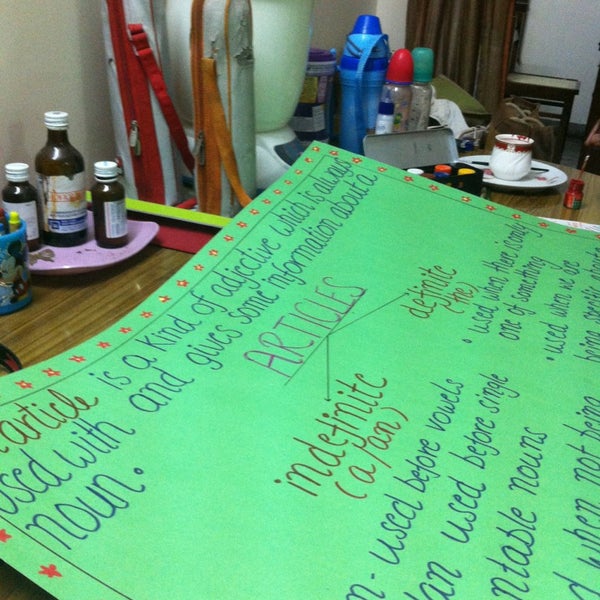 article is a kind of adjective which is always
used with and gives some information about a
noun.
ARTICLES
indefinite
(a/an)
used before vowels
an used before single
nouns
when not being
definite
(the)
• used when there is only
one of something
• used when we are
being specific